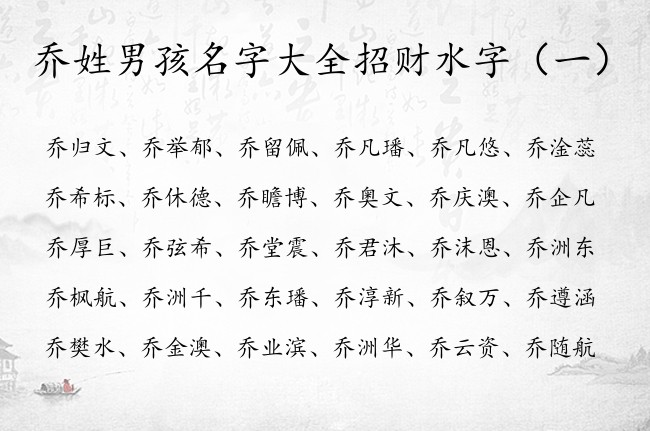 乔姓男孩名字大全招财水字（一）
乔归文、乔举郁、乔留佩、乔凡璠、乔凡悠、乔淦蕊
乔希标、乔休德、乔瞻博、乔奥文、乔庆澳、乔企凡
乔厚巨、乔弦希、乔堂震、乔君沐、乔沫恩、乔洲东
乔枫航、乔洲千、乔东璠、乔淳新、乔叙万、乔遵涵
乔樊水、乔金澳、乔业滨、乔洲华、乔云资、乔随航